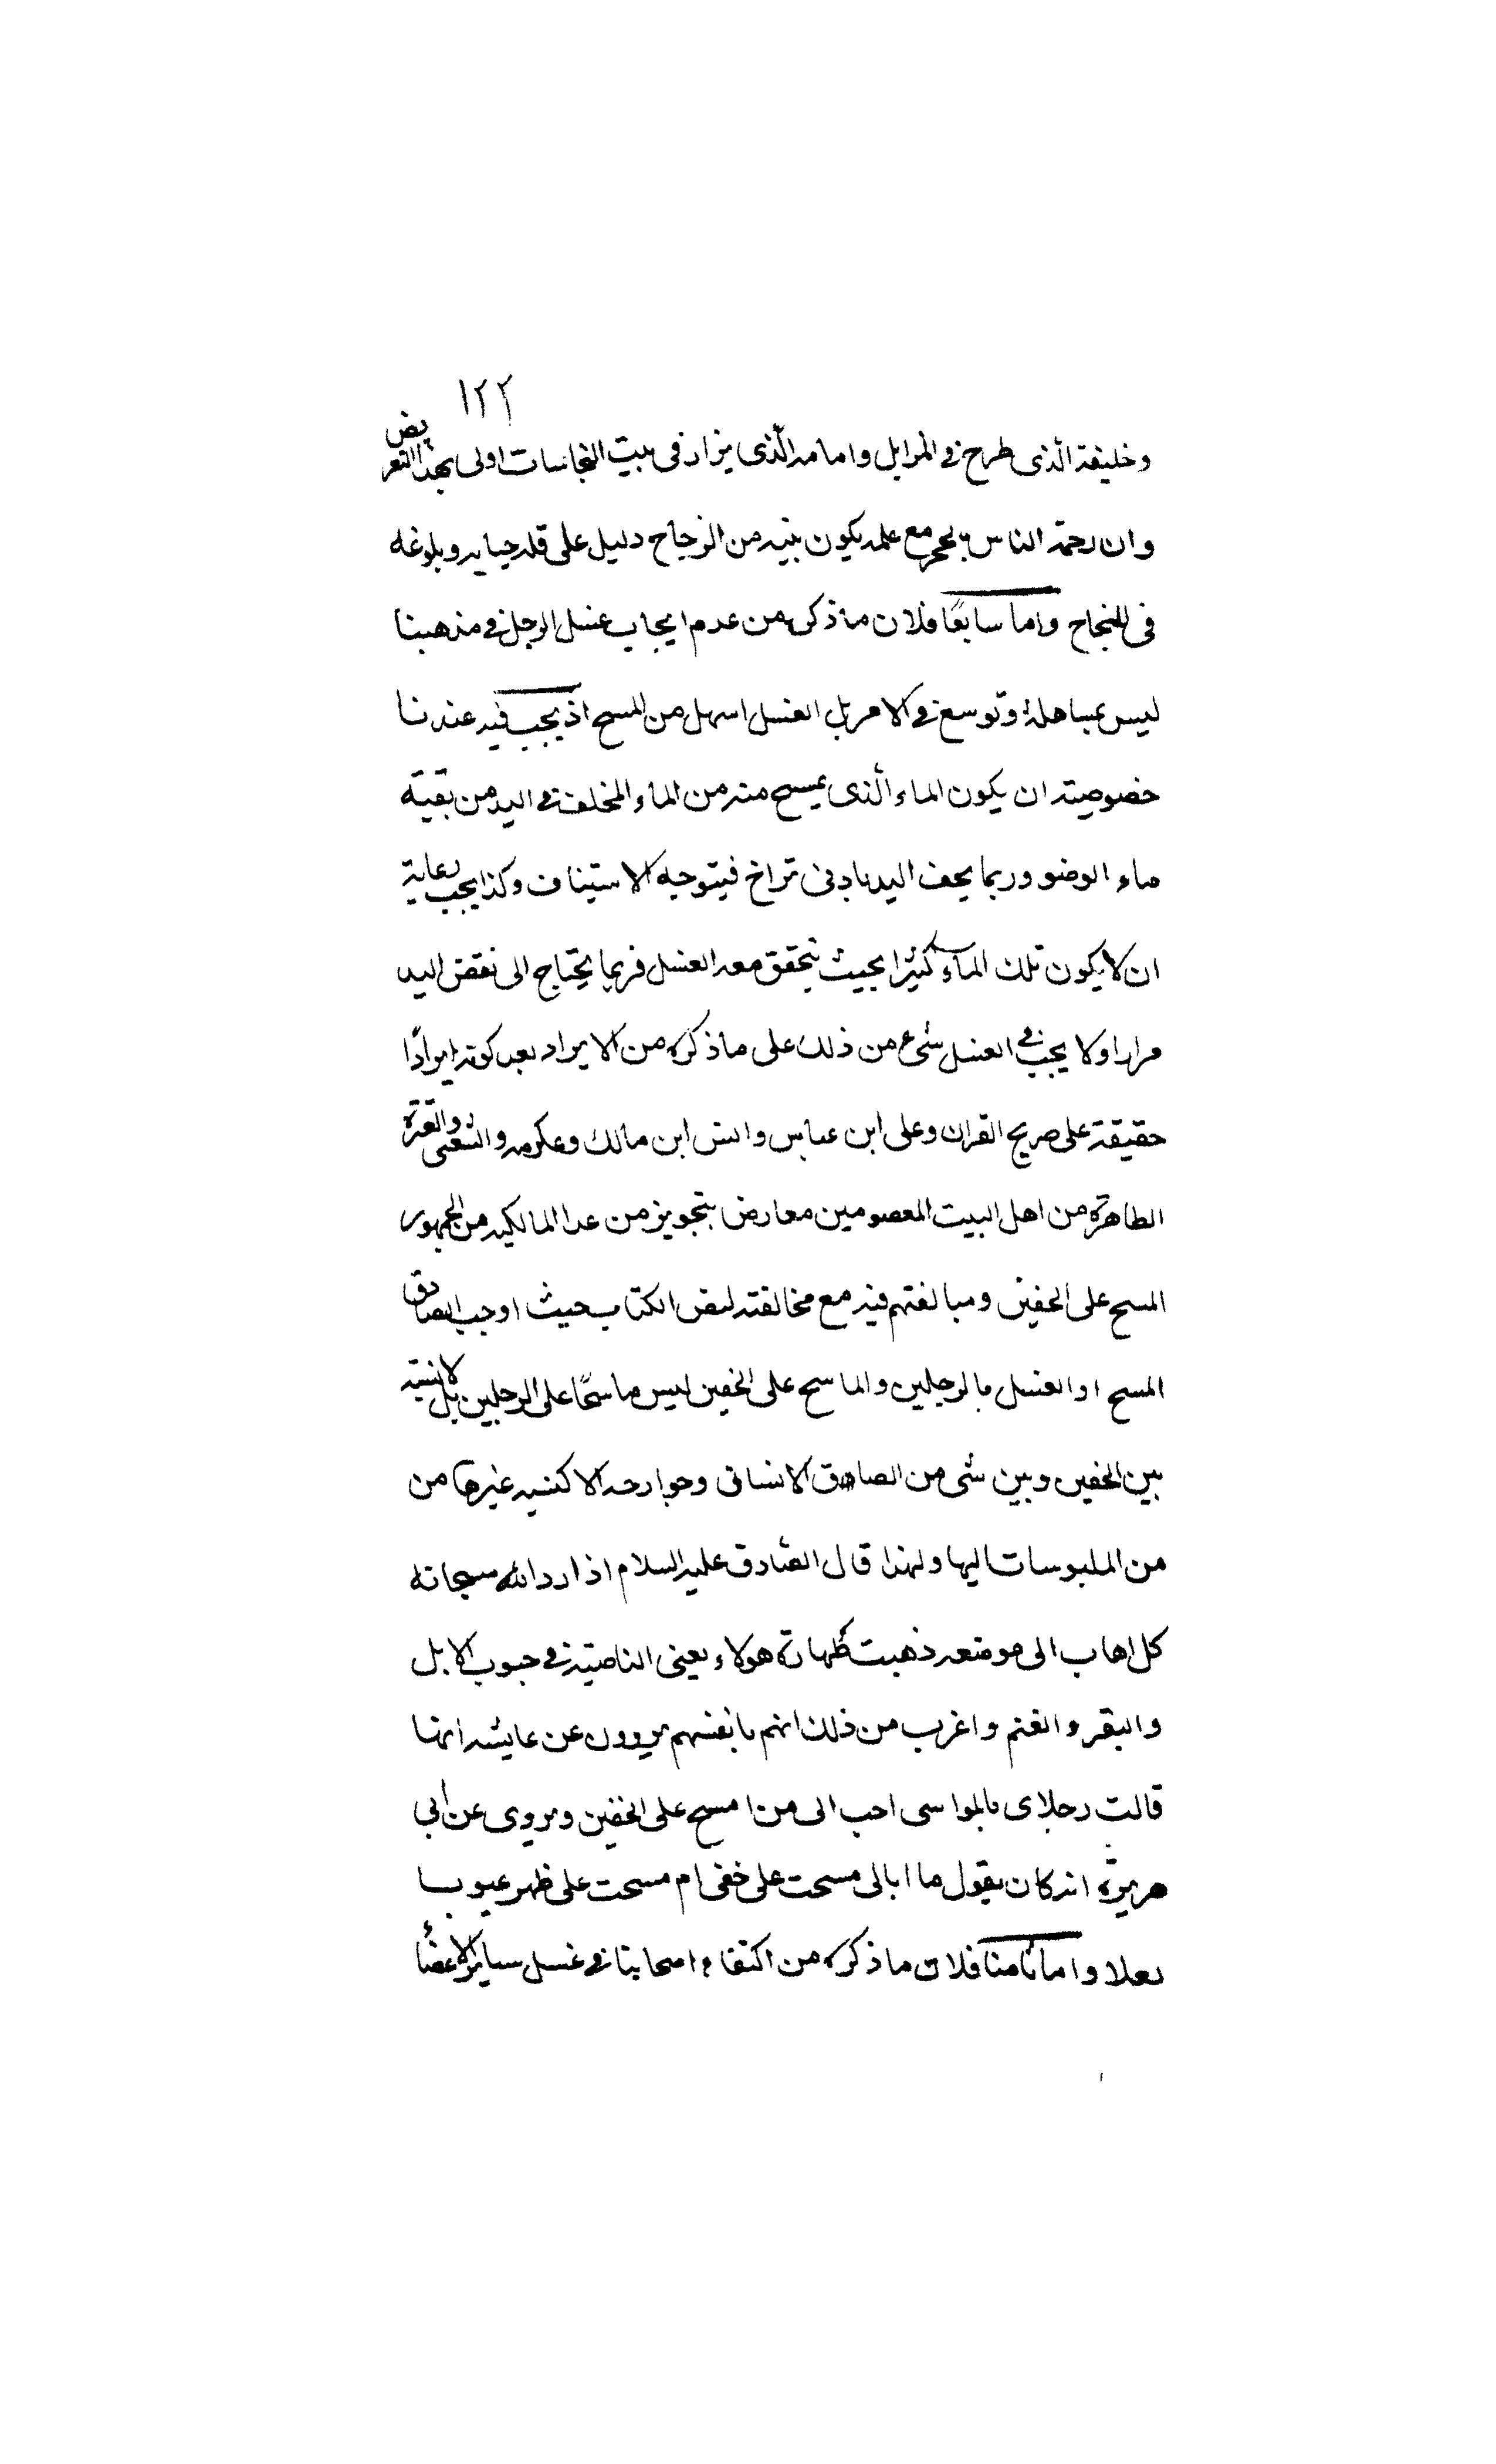 ١٢٢
وخليفة الذى طرح فى المزابل وامامه الّذى يزار فى بيت النجاسات اولى بهذا التعريض
وان رحمة الناس بالحجر مع علمه بكون بنيه من الزجاج دليل على قلة حيايه وبلوغه
فى اللجاج واما سابعًا فلان ما ذكره من عدم ايجاب غسل الرجل فى مذهبنا
ليس بمساهلة وتوسع فى الامر بل الغسل اسهل من المسح اذ يجب فيه عندنا
خصوصية ان يكون الماء الّذى يمسح منه من الماء المخلف فى اليد من بقية
ماء الوضو وربما يجف اليد بادنى تراخ فيتوجه الاستيناف وكذا يجب رعاية
ان لا يكون تلك المآء كثيرا بحيث يتحقق معه الغسل فربما يحتاج الى نفض اليد
مرارا ولا يجب فى الغسل شىء من ذلك على ما ذكره من الايراد بعد كونه ايرادًا
حقيقة على صريح القران وعلى ابن عباس وانس ابن مالك وعكرمه والشعبى والعترة
الطاهرة من اهل البيت المعصومين معارض بتجويز من عدا المالكيه من الجمهور
المسح على الخفين ومبالغتهم فيه مع مخالفته لنص الكتاب حيث اوجب الصادق
المسح او الغسل بالرجلين والماسح على الخفين ليس ماسحًا على الرجلين بل لا نسبة
بين الخفين وبين شى من الصادق الانسانى وجوارحه الا كنسبه غيرها من
من الملبوسات اليها ولهذا قال الصّادق عليه السلام اذا رد الله سبحانه
كل اهاب الى موضعه ذهبت طهارة هولاء يعنى الناصبية فى جنوب الابل
والبقر والغنم واغرب من ذلك انهم بانفسهم يروون عن عايشه انها
قالت رجلاى بالمواسى احب الى من امسح على الخفين ويروى عن أبى
هريرة انه كان يقول ما ابالى مسحت على خفى ام مسحت على ظهر عير بـ
ـعلا واما ثامنا فلان ما ذكره من اكتفاء اصحابنا فى غسل ساير الاعضاء